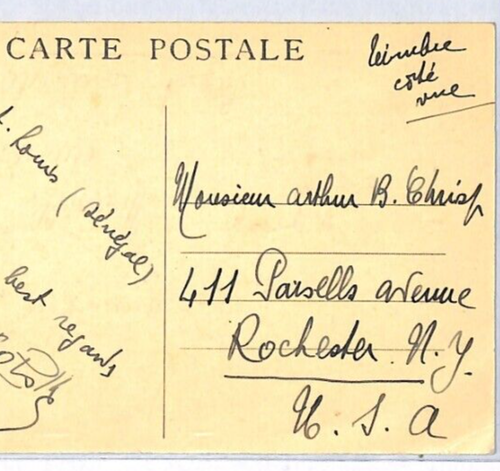 CARTE POSTALE
timbre
côté
vue
St. Louis (Sénégal)
best regards
Monsieur arthur B. Chrisp
411 Parsells avenue
Rochester. N.Y.
U.S.A